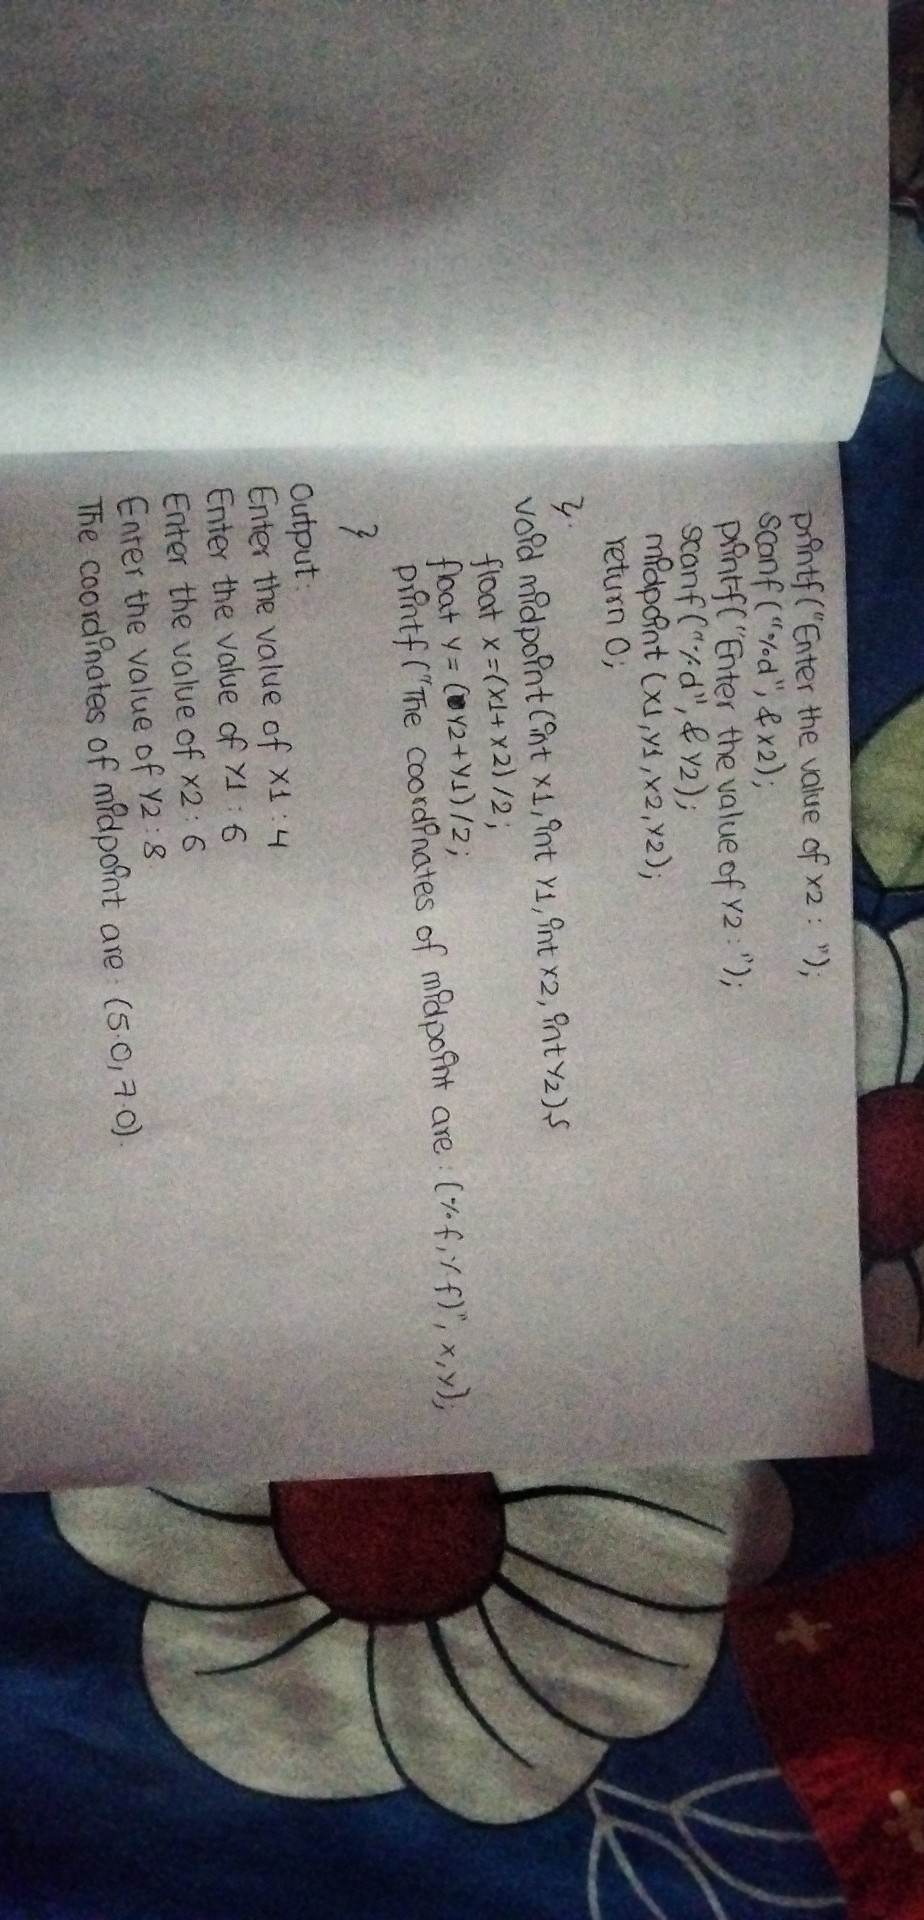 printf("Enter the value of x2 : ");
scanf("%d", &x2);
printf("Enter the value of y2 : ");
scanf("%d", &y2);
midpoint (x1,y1,x2,y2);
return 0;
}.
void midpoint(int x1, int y1, int x2, int y2){
float x=(x1+x2)/2;
float y=(y2+y1)/2;
printf("The coordinates of midpoint are : (%f,%f)", x,y);
}
Output:
Enter the value of x1 : 4
Enter the value of y1 : 6
Enter the value of x2 : 6
Enter the value of y2 : 8
The coordinates of midpoint are : (5.0,7.0).